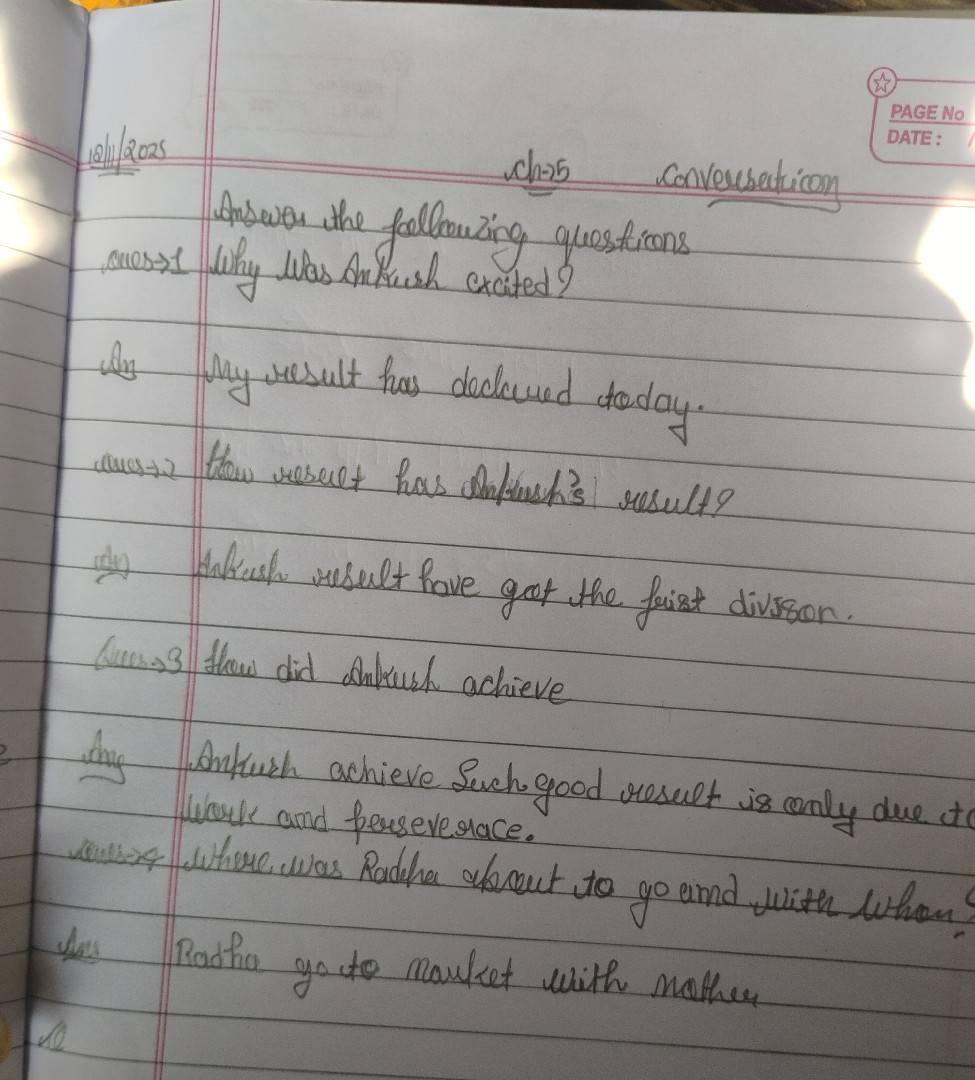 PAGE No
DATE:
18/11/2025
ch→5 Conversation
Answer the following questions
Ques→1 Why Was Ankush excited?
An My result has declured today.
Ques→2 How result has Ankush's result?
An Ankush result have got the feist divison.
Ques→3 How did Ankush achieve
Ans Ankush achieve Such good result is only due to
Work and perseverace.
Ques→4 Where was Radha about to go and with whom?
Ans Radha go to market with mother